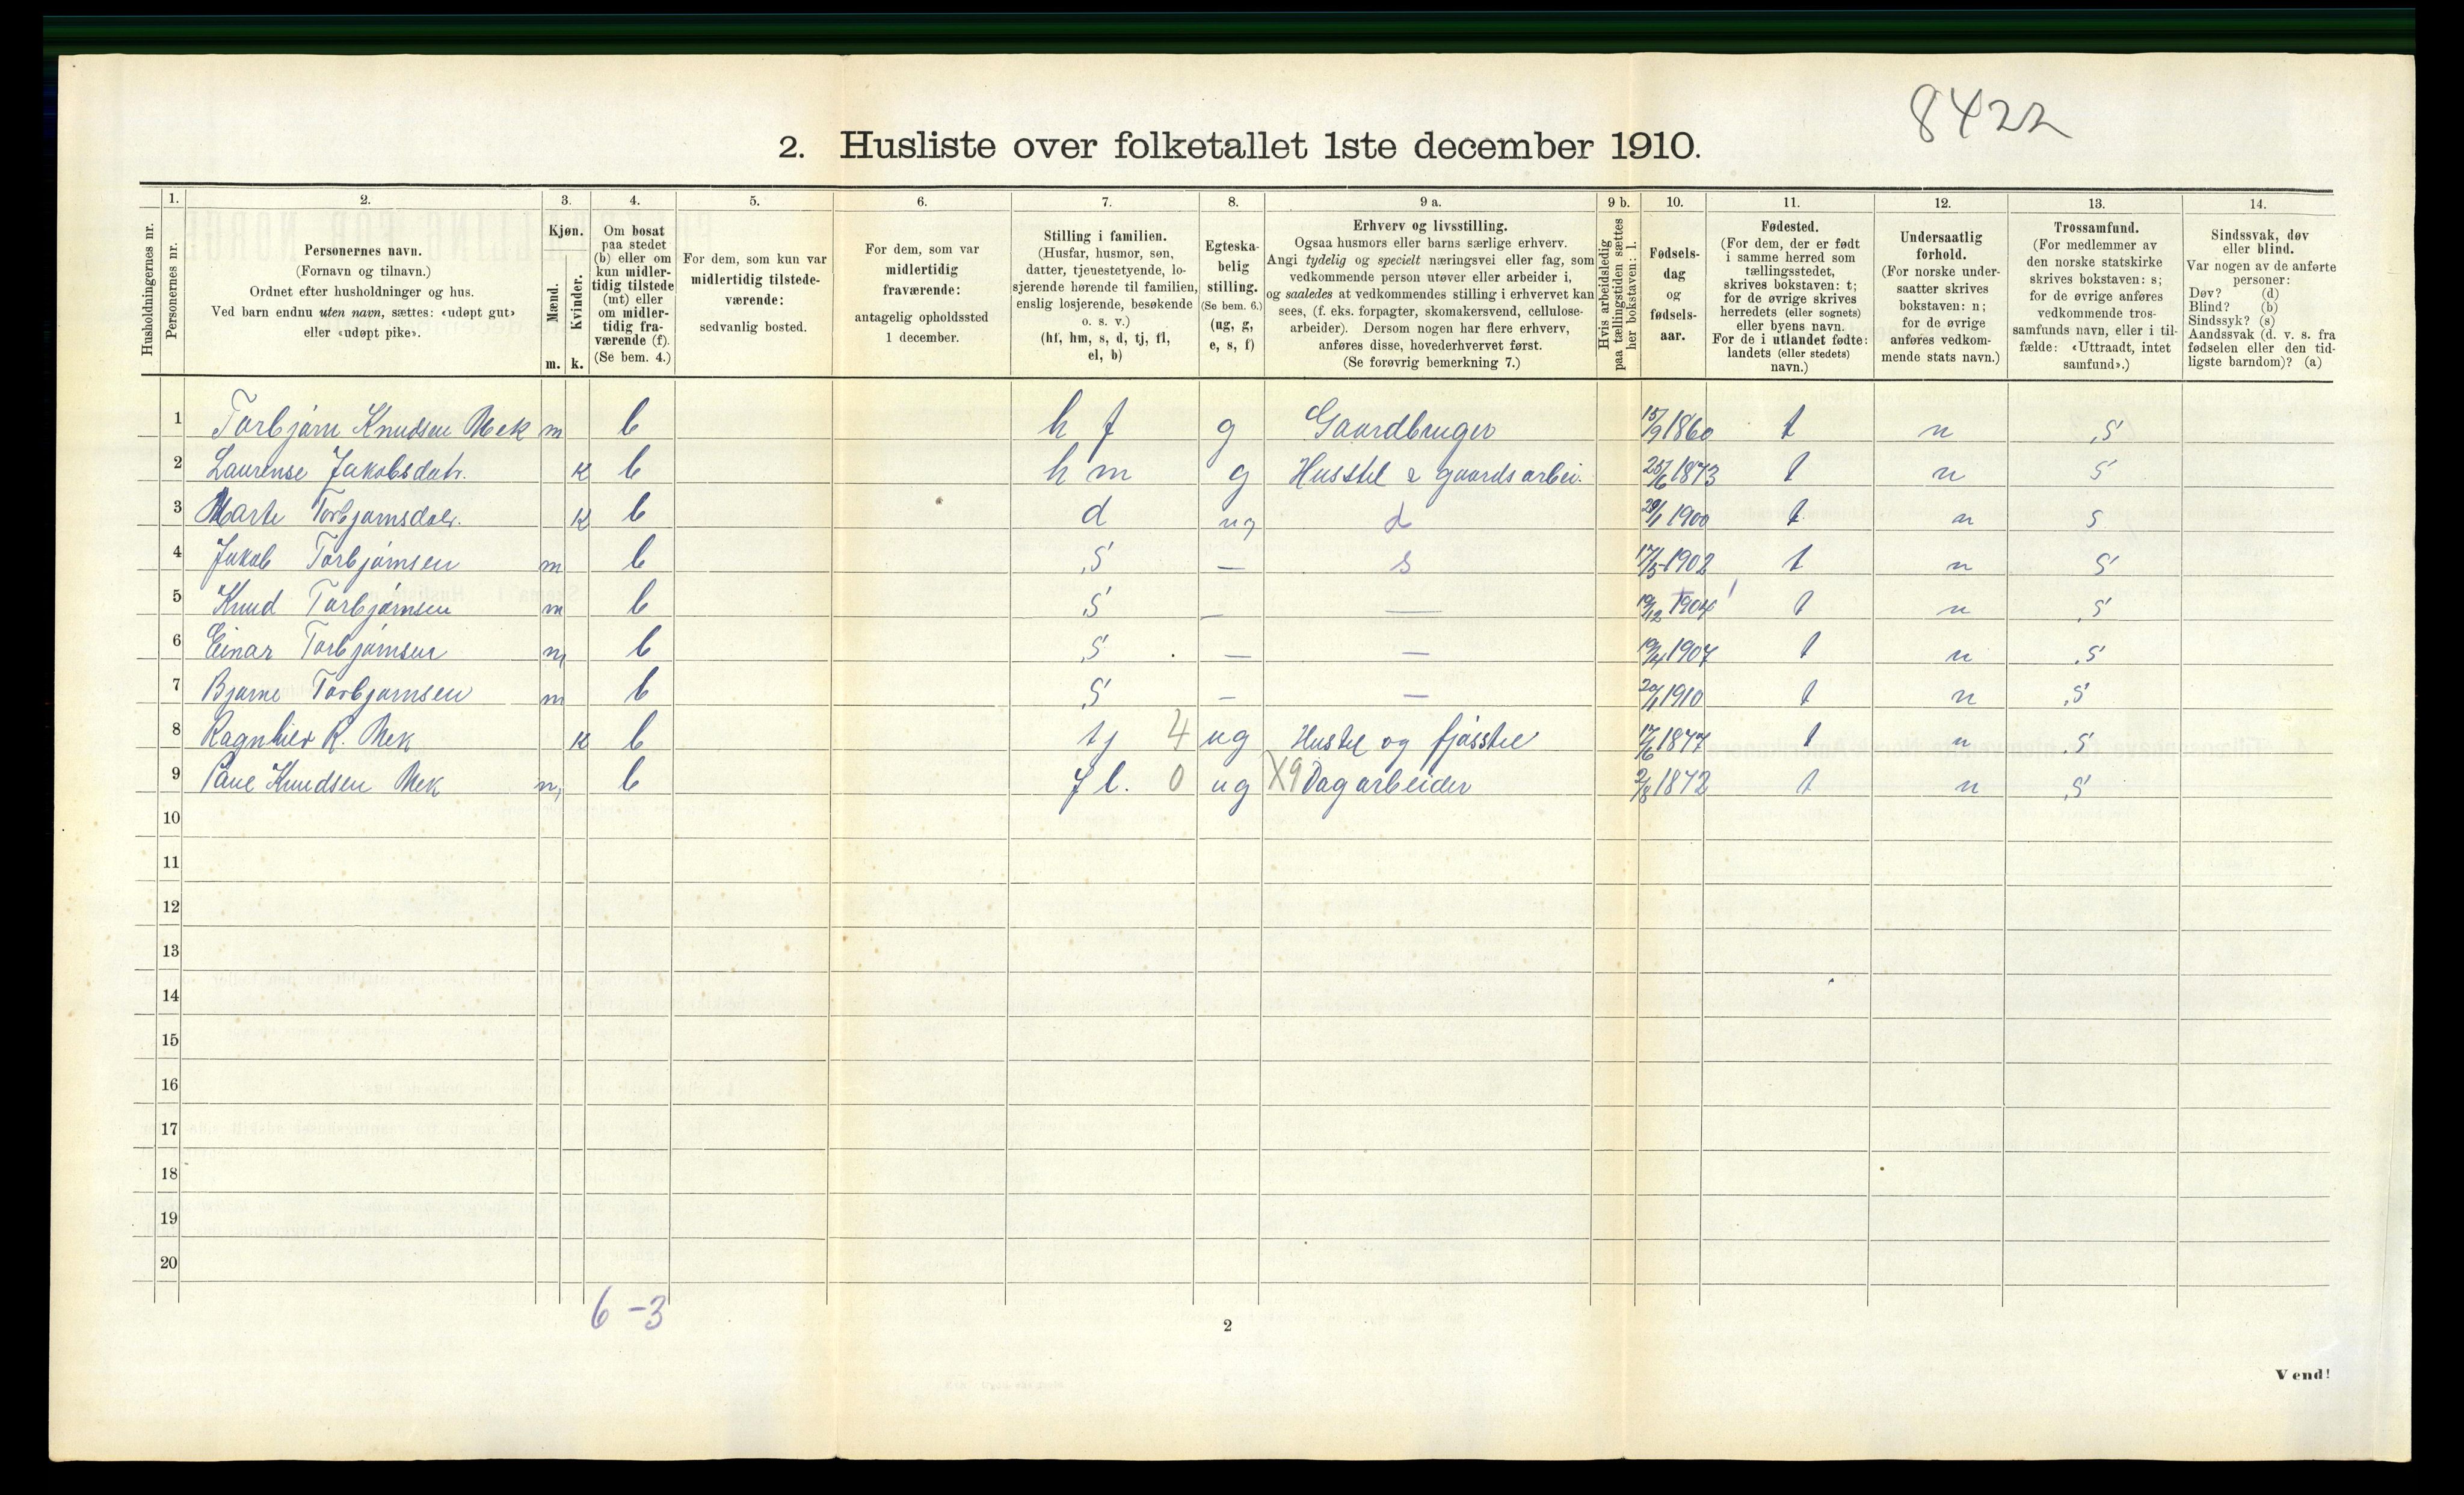 8422
2. Husliste over folketallet 1ste december 1910.
1. 2. 3. 4. 5. 6. 7. 8. 9 a. 9 b. 10. 11. 12. 13. 14.
Husholdningernes nr.
Personernes nr.
Personernes navn.
(Fornavn og tilnavn.)
Ordnet efter husholdninger og hus.
Ved barn endnu uten navn, sættes: «udøpt gut»
eller «udøpt pike».
Kjøn.
Mænd.
Kvinder.
m. k.
Om bosat
paa stedet
(b) eller om
kun midler-
tidig tilstede
(mt) eller
om midler-
tidig fra-
værende (f).
(Se bem. 4.)
For dem, som kun var
midlertidig tilstede-
værende:
sedvanlig bosted.
For dem, som var
midlertidig
fraværende:
antagelig opholdssted
1 december.
Stilling i familien.
(Husfar, husmor, søn,
datter, tjenestetyende, lo-
sjerende hørende til familien,
enslig losjerende, besøkende
o. s. v.)
(hf, hm, s, d, tj, fl,
el, b)
Egteska-
belig
stilling.
(Se bem. 6.)
(ug, g,
e, s, f)
Erhverv og livsstilling.
Ogsaa husmors eller barns særlige erhverv.
Angi tydelig og specielt næringsvei eller fag, som
vedkommende person utøver eller arbeider i,
og saaledes at vedkommendes stilling i erhvervet kan
sees, (f. eks. forpagter, skomakersvend, cellulose-
arbeider). Dersom nogen har flere erhverv,
anføres disse, hovederhvervet først.
(Se forøvrig bemerkning 7.)
Hvis arbeidsledig
paa tællingstiden sættes
her bokstaven: l.
Fødsels-
dag
og
fødsels-
aar.
Fødested.
(For dem, der er født
i samme herred som
tællingsstedet,
skrives bokstaven: t;
for de øvrige skrives
herredets (eller sognets)
eller byens navn.
For de i utlandet fødte:
landets (eller stedets)
navn.)
Undersaatlig
forhold.
(For norske under-
saatter skrives
bokstaven: n;
for de øvrige
anføres vedkom-
mende stats navn.)
Trossamfund.
(For medlemmer av
den norske statskirke
skrives bokstaven: s;
for de øvrige anføres
vedkommende tros-
samfunds navn, eller i til-
fælde: «Uttraadt, intet
samfund».)
Sindssvak, døv
eller blind.
Var nogen av de anførte
personer:
Døv? (d)
Blind? (b)
Sindssyk? (s)
Aandssvak (d. v. s. fra
fødselen eller den tid-
ligste barndom)? (a)
1 Torbjørn Knudsen Mek m b h f g Gaardbruger 15/9 1860 t n S
2 Laurense Jakobsdatr. k b h m g Husstel & gaardsarbei. 25/6 1873 t n S
3 Marte Torbjørnsdatr. k b d ug d 29/1 1900 t n s
4 Jakob Torbjørnsen m b S — s 17/5 1902 t n S
5 Knud Torbjørnsen m b S — — 19/12 1904 t n S
6 Einar Torbjørnsen m b S — — 19/4 1907 t n S
7 Bjarne Torbjørnsen m b S — — 20/1 1910 t n S
8 Ragnhild K. Mek k b tj 4 ug Hustel og fjøsstel 17/6 1877 t n S
9 Paul Knudsen Mek m b f l. 0 ug X9 Dagarbeider 2/8 1872 t n S
10
11
12
13
14
15
16
17
18
19
20
6 - 3
2
Vend!